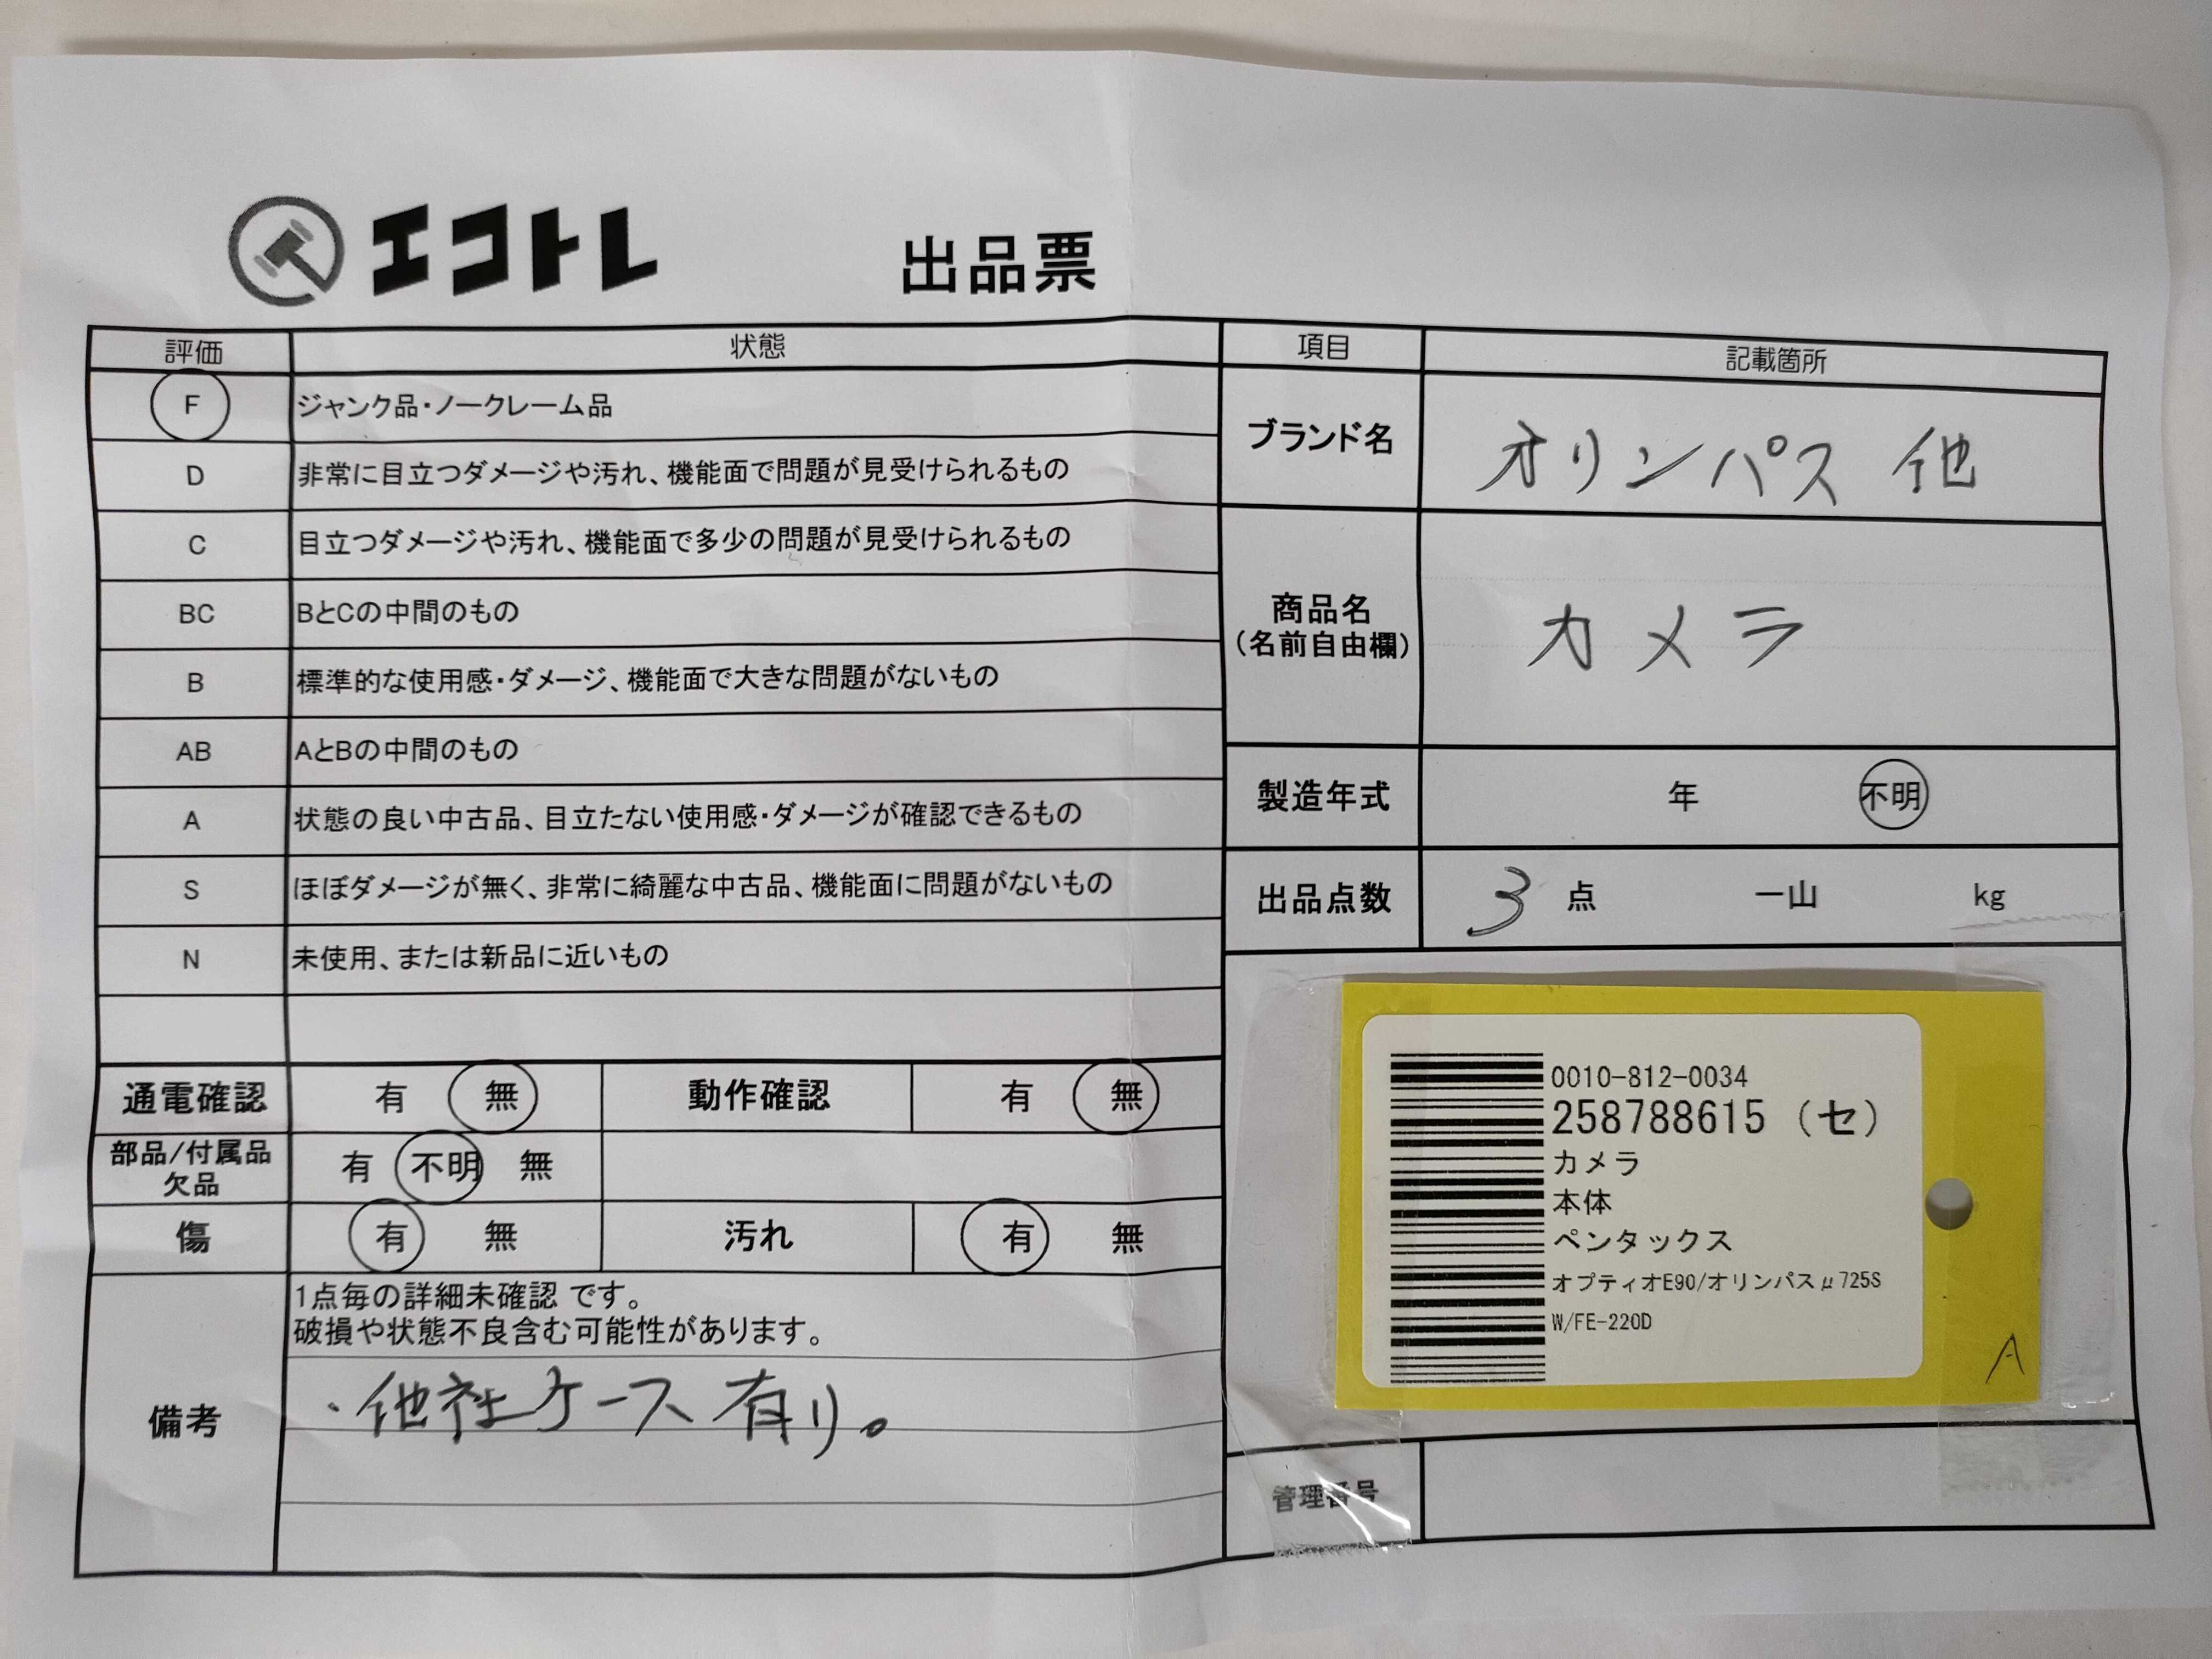 エコトレ
出品票
評価 状態
F ジャンク品・ノークレーム品
D 非常に目立つダメージや汚れ、機能面で問題が見受けられるもの
C 目立つダメージや汚れ、機能面で多少の問題が見受けられるもの
BC BとCの中間のもの
B 標準的な使用感・ダメージ、機能面で大きな問題がないもの
AB AとBの中間のもの
A 状態の良い中古品、目立たない使用感・ダメージが確認できるもの
S ほぼダメージが無く、非常に綺麗な中古品、機能面に問題がないもの
N 未使用、または新品に近いもの
通電確認 有 無 動作確認 有 無
部品/付属品
欠品 有 不明 無
傷 有 無 汚れ 有 無
備考
1点毎の詳細未確認 です。
破損や状態不良含む可能性があります。
・他社ケース有り。
項目 記載箇所
ブランド名 オリンパス 他
商品名
(名前自由欄)
カメラ
製造年式 年 不明
出品点数 3 点 一山 kg
0010-812-0034
258788615 (セ)
カメラ
本体
ペンタックス
オプティオE90/オリンパスμ725S
W/FE-220D
A
管理番号